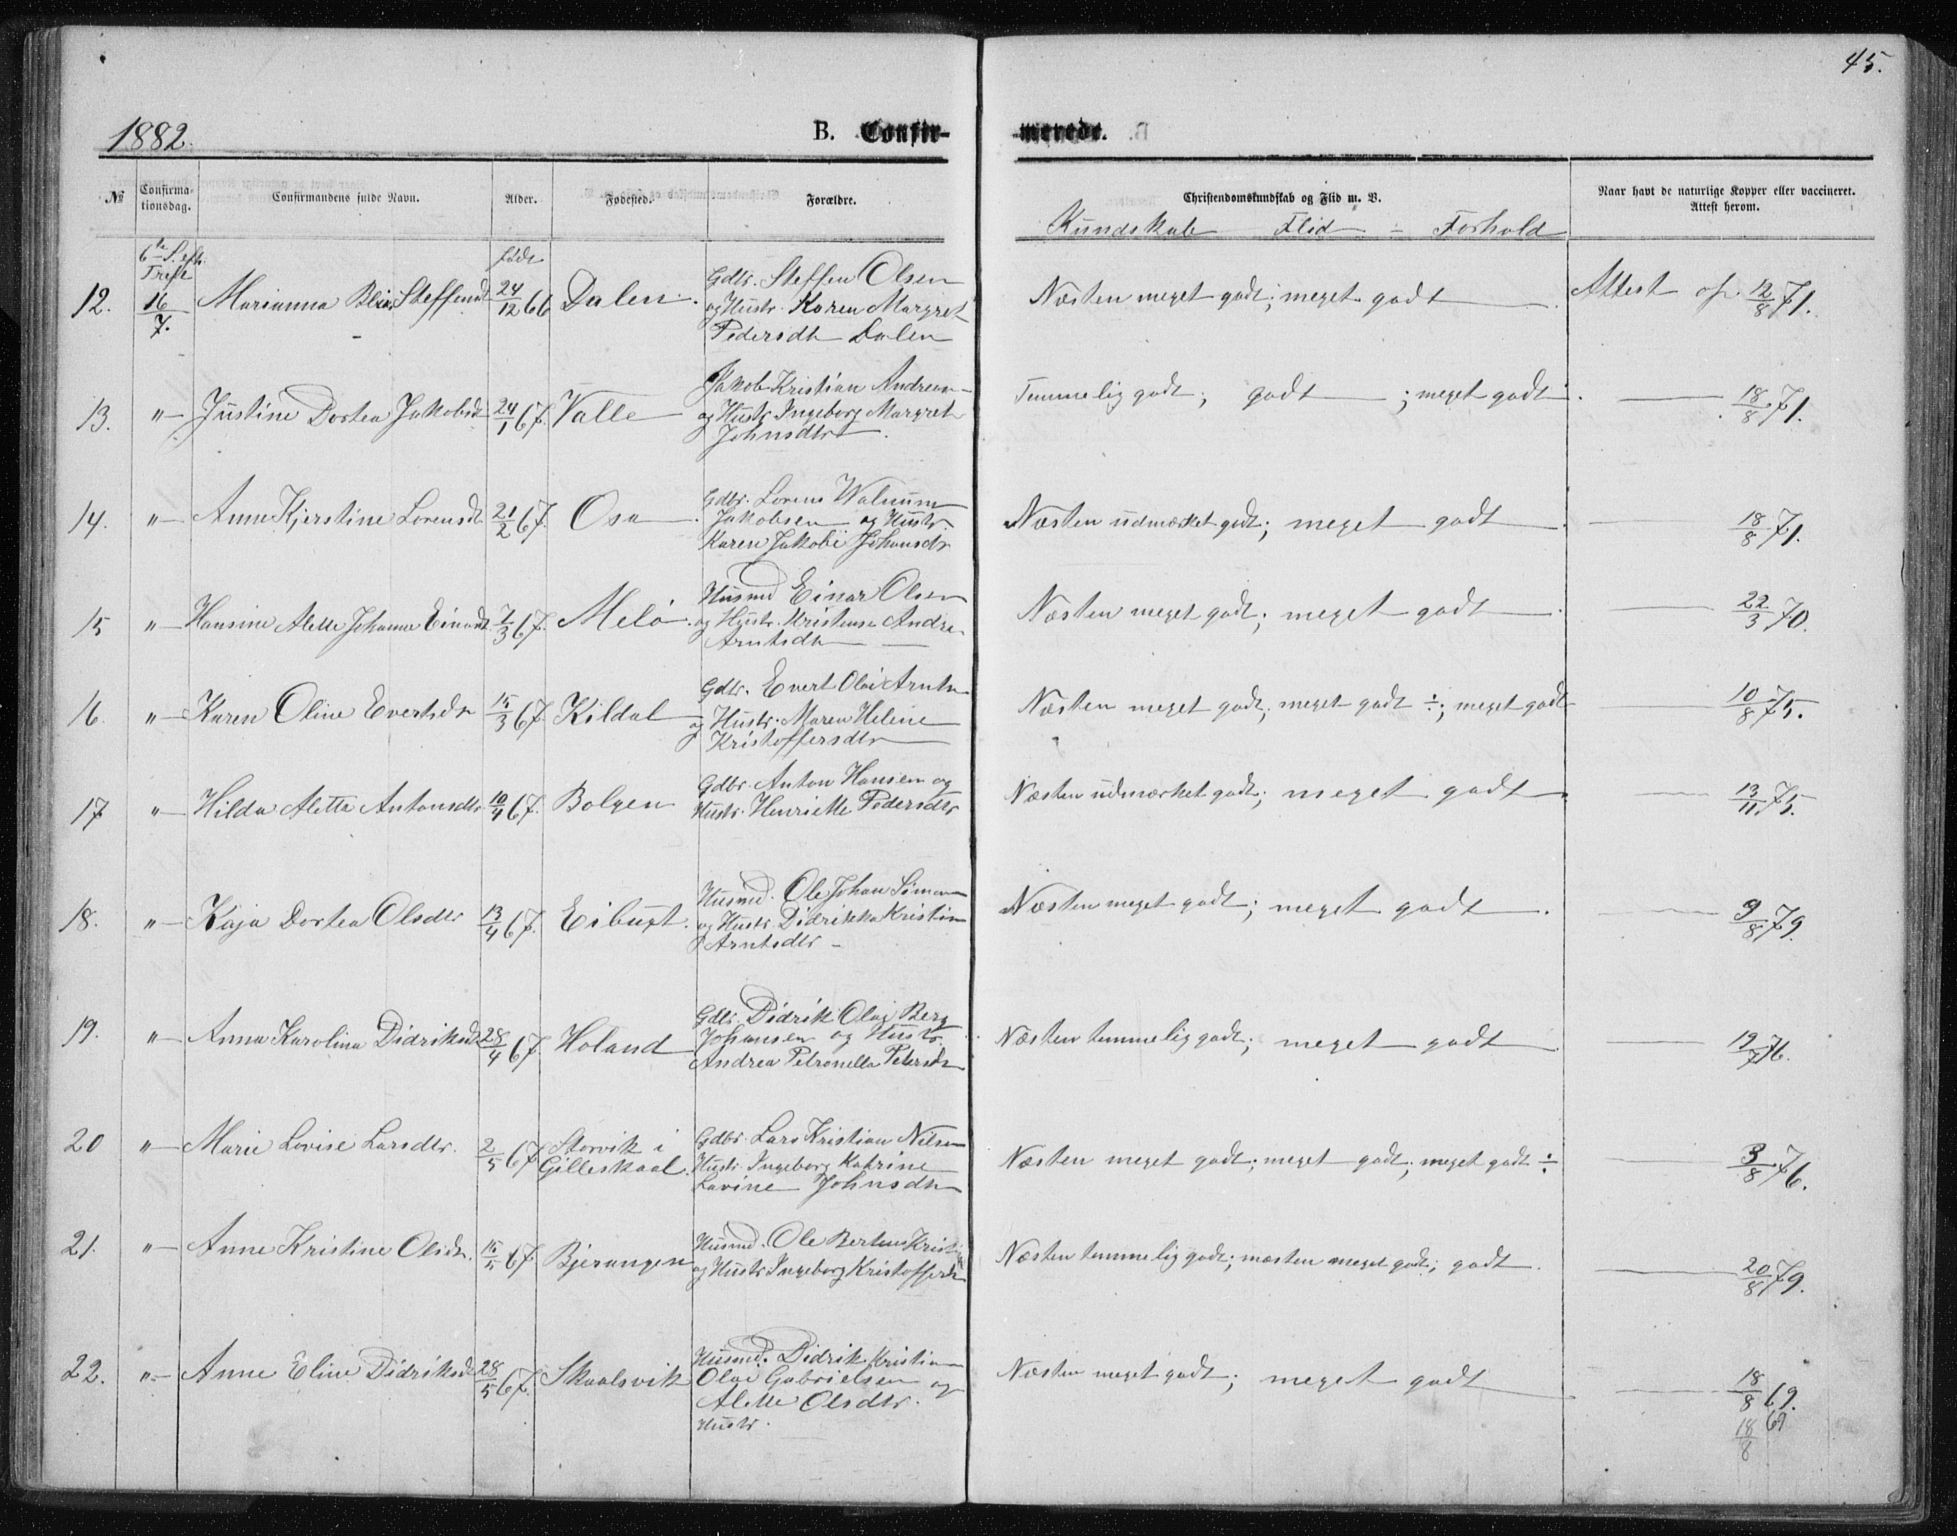 45.
1882.
B. Confir- merede.
№ Confirma-tionsdag. Confirmandens fulde Navn. Alder. Fødested. Forældre. Christendomskundskab og Flid m. V. Naar havt de naturlige Kopper eller vaccineret. Attest herom.
Kundskab Flid Forhold
6te S. eft. Tref. født
12. 16/7. Marianna Steffensdt 24/12 66 Dalen Gdbr. Steffen Olsen
og Hustr. Karen Margret
Pedersdtr Dalen
Næsten meget godt; meget godt Attest af 12/8 71.
13. " Justine Dortea Jakobsdt 24/1 67. Valle Jakob Kristian Andreas
og Hustr. Ingeborg Margret
Johnsdtr
Temmelig godt; godt ; meget godt. 18/8 71.
14. " Anne Kjerstine Lorensdt 21/2 67. Osa Gdbr. Lorens Walnum
Jakobsen og Hustr.
Karen Jakobi Johansdtr
Næsten udmærket godt; meget godt 18/8 71.
15 " Hansine Alette Johanna Einarsdt 7/3 67. Melö Husmd Einar Olsen
og Hustr. Kristense Andrea
Arntsdtr
Næsten meget godt; meget godt 22/3 70.
16. " Karen Oline Evertsdtr 15/3 67. Kildal Gdbr. Evert Olai Arnts
og Hustr. Maren Heline
Kristoffersdtr
Næsten meget godt; meget godt ÷; meget godt 10/8 75.
17 " Hilda Aletta Antonsdtr 10/4 67. Bolgen Gdbr. Anton Hansen og
Hustr. Henriette Pedersdtr
Næsten udmærket godt; meget godt 13/11 75.
18. " Kaja Dortea Olsdtr 13/4 67. Eibugt. Husmd. Ole Johan Simon
og Hustr. Didrikka Kristin
Arntsdtr
Næsten meget godt; meget godt. 9/8 79.
19. " Anna Karolina Didriksdt 28/4 67. Holand Gdbr. Didrik Olai Berg
Johansen og Hustr.
Andrea Petronella Petersdtr
Næsten temmelig godt; meget godt 19/7 76.
20 " Marie Lovise Larsdtr. 2/5 67. Storvik i Gilleskaal. Gdbr. Lars Kristian Nilsen
Hustr. Ingeborg Katrine
Lavine Johnsdtr
Næsten meget godt; meget godt; meget godt ÷ 3/8 76.
21. " Anne Kristine Olsdtr. 15/5 67. Bjerangen Husmd. Ole Berteus Krist
og Hustr. Ingeborg Kristoffersdtr
Næsten temmelig godt; næsten meget godt; godt. 20/8 79.
22. " Anne Eline Didriksdt 28/5 67. Skaalsvik Husmd. Didrik Kristian
Olai Gabrielsen og
Alette Olsdtr.
Hustr.
Næsten meget godt; meget godt 18/8 69.
18/8 69